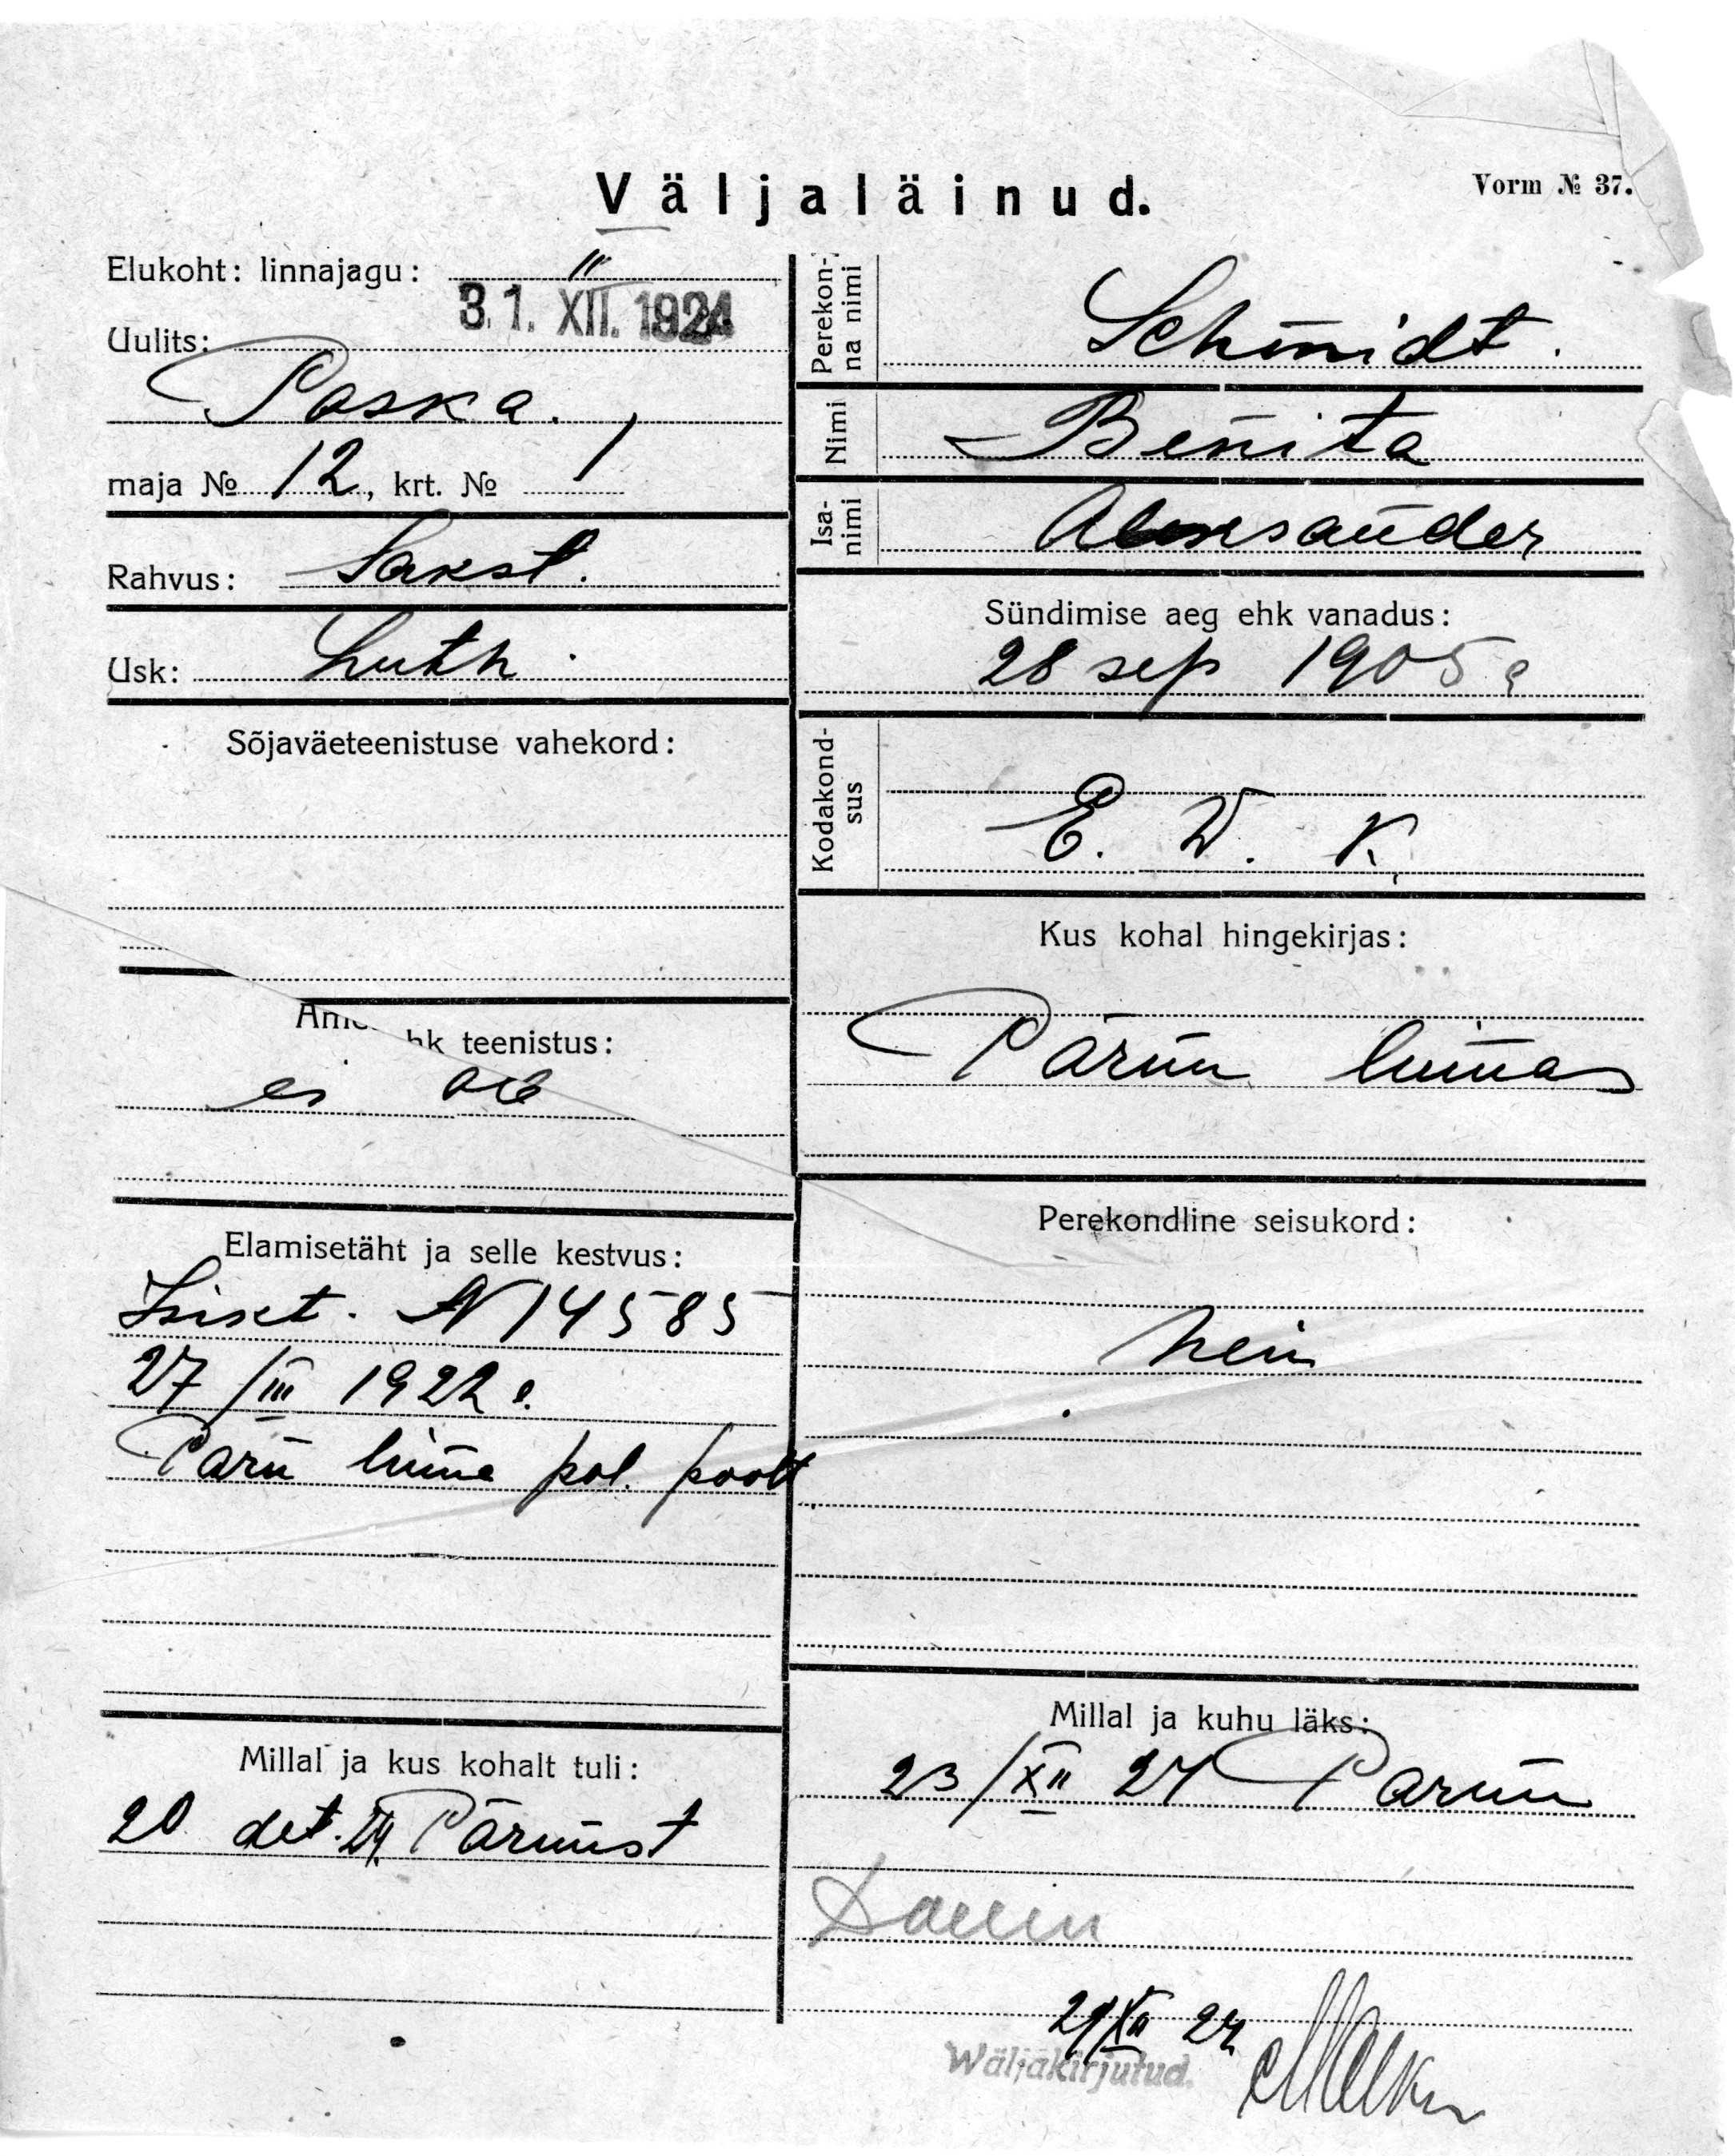 Väljaläinud.
Vorm № 37.
Elukoht: linnajagu: III
31. XII. 1924
Uulits:
Poska.
maja № 12, krt. № 1
Rahvus: Saksl.
Usk: Luth.
Sõjaväeteenistuse vahekord:
hk teenistus:
ei ole
Elamisetäht ja selle kestvus:
Isiket. N 14585
27/III 1922 a.
Pärn linna pol. poolt
Millal ja kus kohalt tuli:
20 det. 24. Pärnust
Perekon-
na nimi
Schmidt.
Nimi
Benita
Isa-
nimi
Aleksander
Sündimise aeg ehk vanadus:
28 sep 1905 a
Kodakond-
sus
E. W. K.
Kus kohal hingekirjas:
Pärnu linnas
Perekondline seisukord:
nein
Millal ja kuhu läks:
23/XII 24 Pärnu
29/XII 24
Wäljakirjutud.